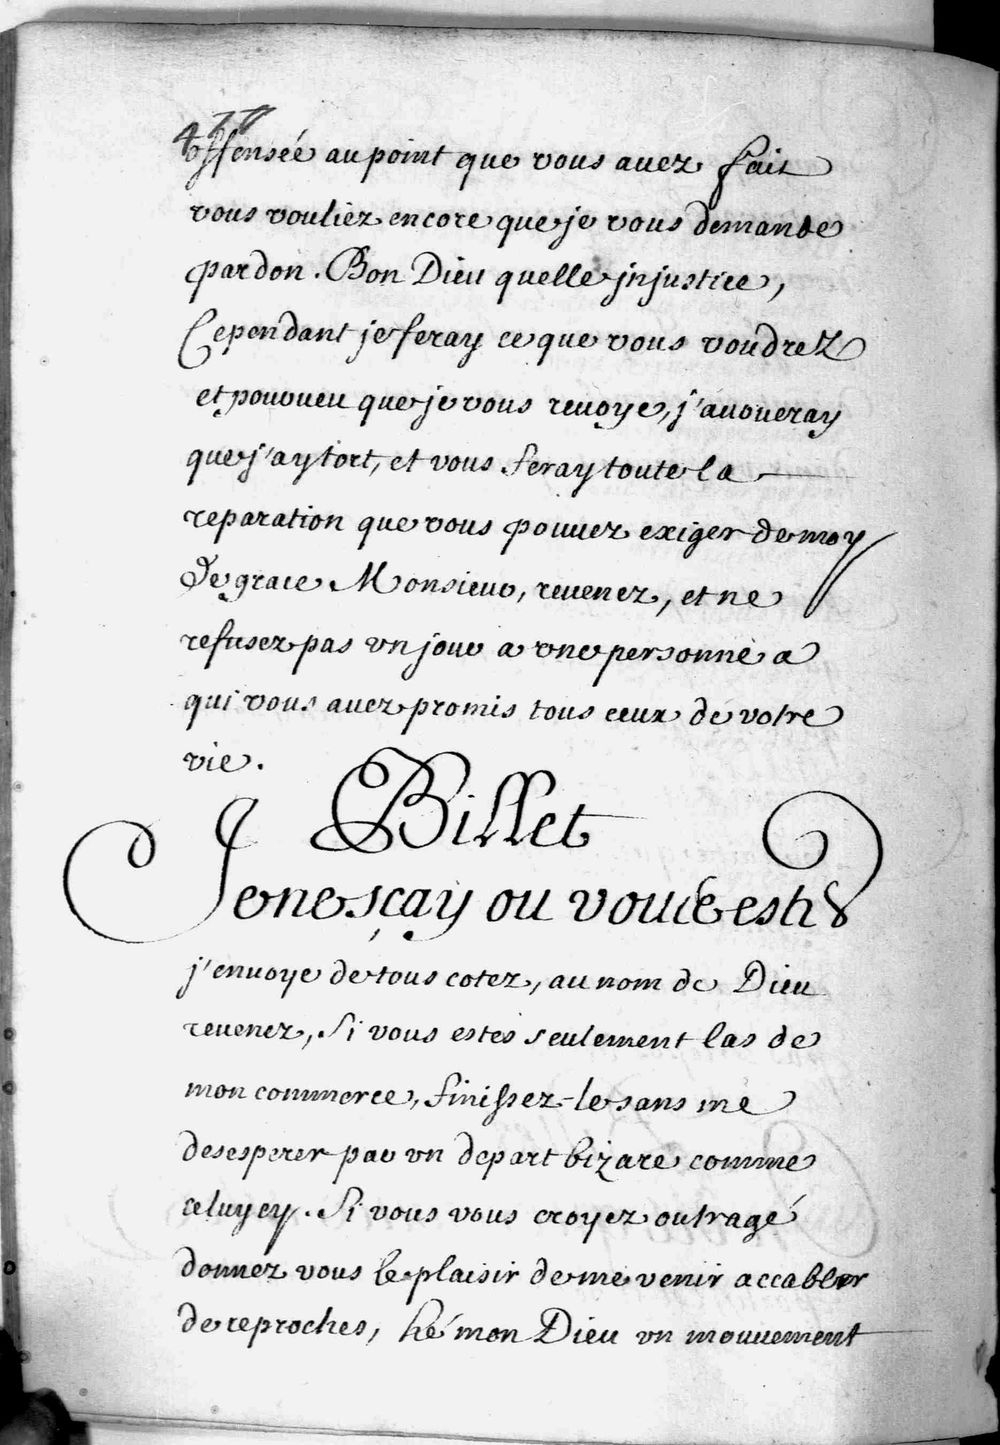 offensée au point que vous avez fait
vous vouliez encore que je vous demande
pardon. Bon Dieu quelle jnjustice,
Cependant je feray ce que vous voudrez
et pourveu que je vous revoye, j'avoueray
que j'ay tort, et vous feray toute la
reparation que vous pouvez exiger de moy
De grace Monsieur, revenez, et ne
refusez pas vn jour a vne personne a
qui vous avez promis tous ceux de votre
vie.
Billet
Je ne sçay ou vous estes
j'envoye de tous cotez, au nom de Dieu
revenez, Si vous estes seulement las de
mon commerce, finissez-le sans me
desesperer par vn depart bizare comme
celuy cy. Si vous vous croyez outragé
donnez vous le plaisir de me venir accabler
de reproches, hé mon Dieu vn mouvement